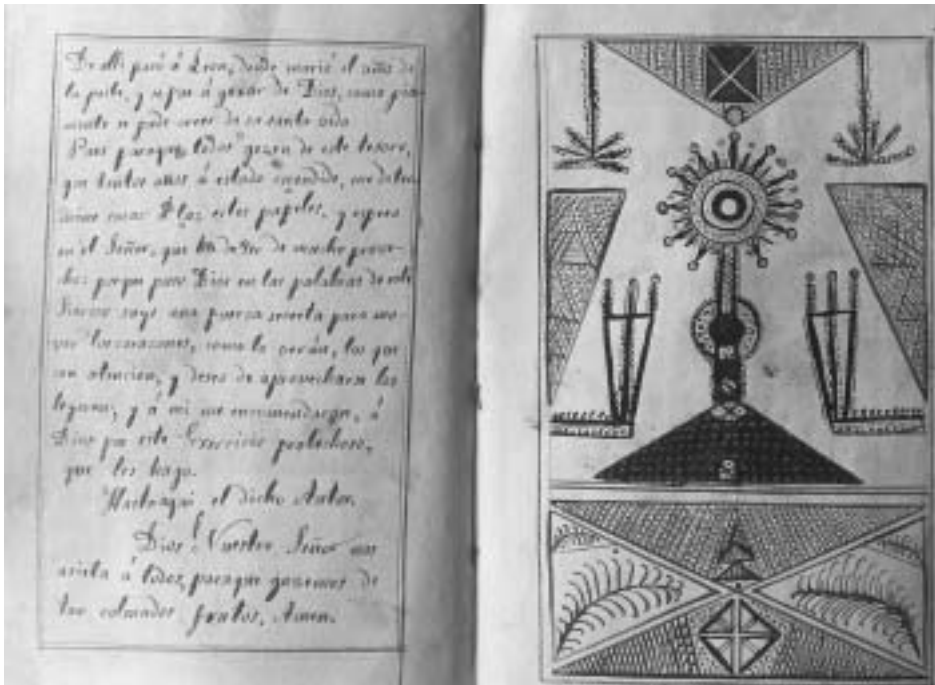 De alli pasó á Leon, donde murió el año de
la peste, y se fue á gozar de Dios, como pia-
mente se pude creer de su santa vida
Pues paraque todos gozen de este tesoro,
que tantos años á estado escondido,
estos papeles, y espero
en el Señor, que de ser de mucho prove-
cho; porque puso Dios en las palabras de este
Siervo suyo una fuerza secreta para mo-
ver los corazones, como lo verán, los que
con atencion, y deseo de aprovecharse los
leyeren, y á mi me encomendaran, á
Dios por este Exercicio
que les hago.
Hastaqui el dicho Autor.
Dios Nuestro Señor nos
asista á todos, paraque gozemos de
tan colmados frutos, Amen.